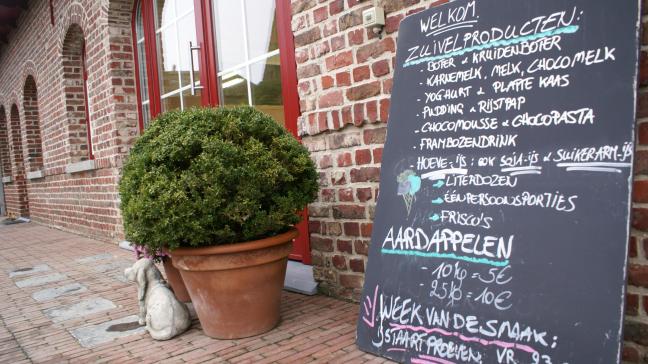 WELKOM.
ZUIVELPRODUCTEN:
- BOTER & KRUIDENBOTER
- KARNEMELK, MELK, CHOCOMELK
- YOGHURT & PLATTE KAAS
- PUDDING & RIJSTPAP
- CHOCOMOUSSE & CHOCOPASTA
- FRAMBOZENDRINK
HOEVE-IJS: OOK SOJA-IJS & SUIKERARM-IJS
→ LITERDOZEN
→ ÉÉNPERSOONSPORTIES
→ FRISCO'S
AARDAPPELEN
- 10kg = 5€
25kg = 10€
WEEK VAN DE SMAAK:
PROEVEN: VR